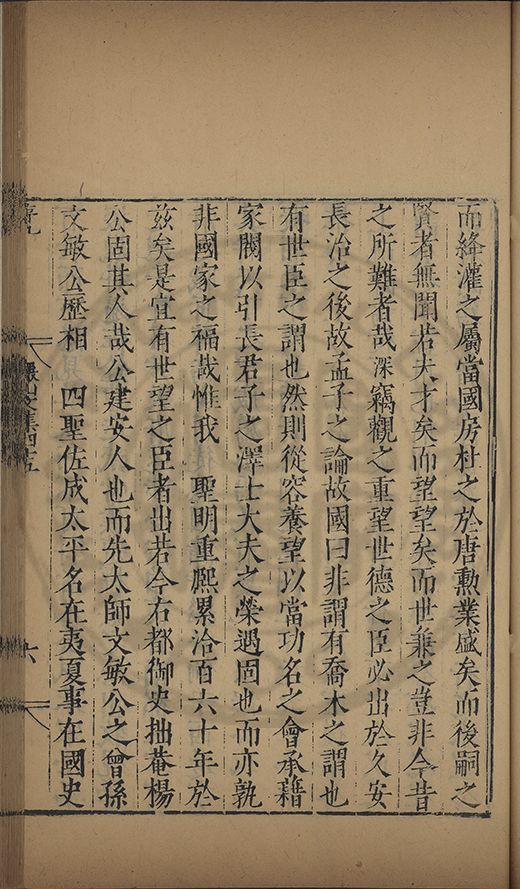 而絳灌之屬當國房杜之於唐勲業盛矣而後嗣之
賢者無聞若夫才矣而望望矣而世兼之豈非今昔
之所難者哉深竊觀之重望世德之臣必出於久安
長治之後故孟子之論故國曰非謂有喬木之謂也
有世臣之謂也然則從容養望以當功名之會承藉
家閥以引長君子之澤士大夫之榮遇固也而亦孰
非國家之福哉惟我 聖明重熈累洽百六十年於
兹矣是宜有世望之臣者出若今右都御史拙菴楊
公固其人哉公建安人也而先太師文敏公之曾孫
文敏公歷相 四聖佐成太平名在夷夏事在國史
六